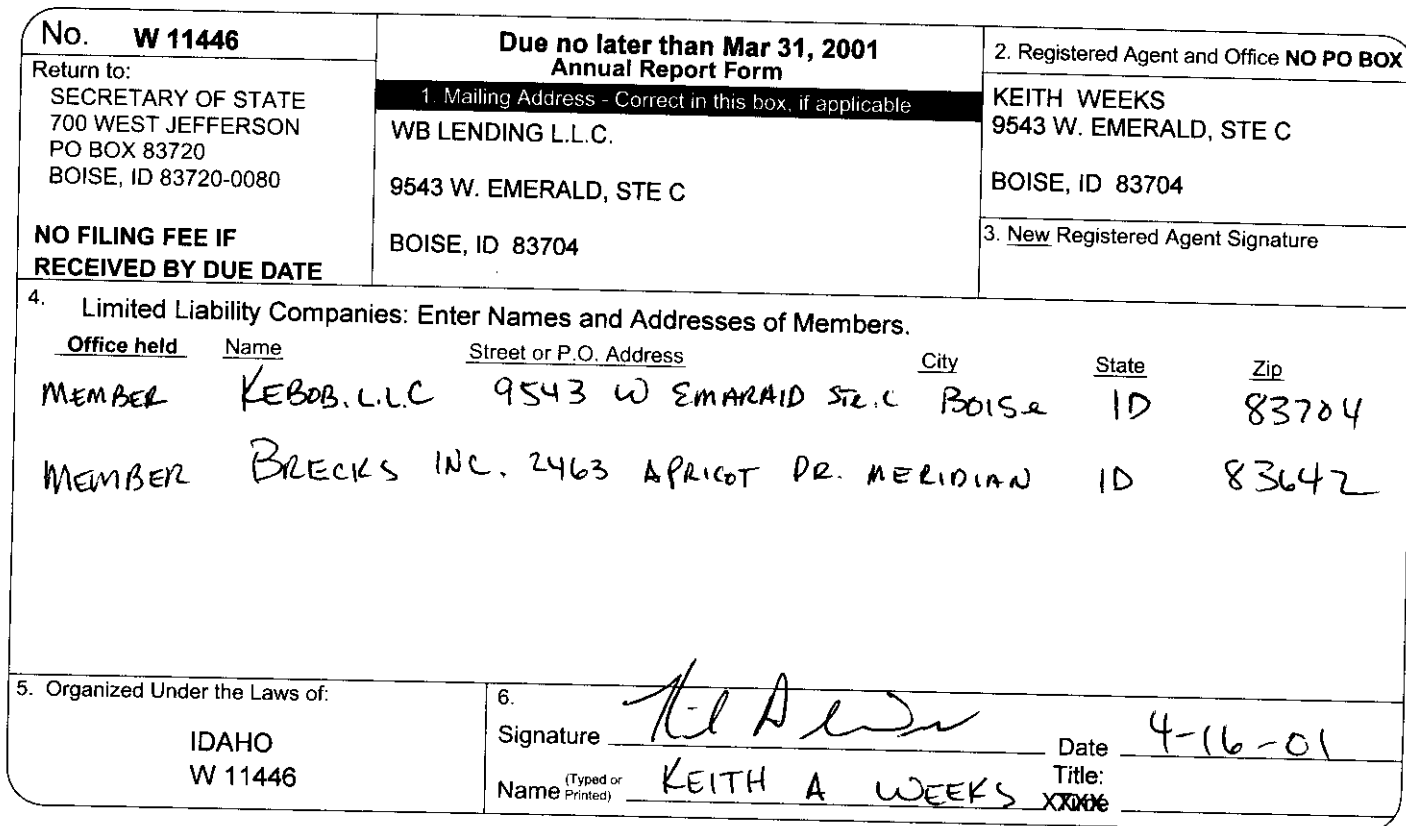 No. W 11446
Return to:
SECRETARY OF STATE
700 WEST JEFFERSON
PO BOX 83720
BOISE, ID 83720-0080
NO FILING FEE IF
RECEIVED BY DUE DATE
Due no later than Mar 31, 2001
Annual Report Form
1. Mailing Address - Correct in this box, if applicable
WB LENDING L.L.C.
9543 W. EMERALD, STE C
BOISE, ID 83704
2. Registered Agent and Office NO PO BOX
KEITH WEEKS
9543 W. EMERALD, STE C
BOISE, ID 83704
3. New Registered Agent Signature
4. Limited Liability Companies: Enter Names and Addresses of Members.
Office held Name Street or P.O. Address City State Zip
MEMBER KEBOB. L.L.C 9543 W EMARAID STE. C BOISe ID 83704
MEMBER BRECKS INC. 2463 APRICOT DR. MERIDIAN ID 83642
5. Organized Under the Laws of:
IDAHO
W 11446
6.
Signature Date 4-16-01
Name (Typed or Printed) KEITH A WEEKS Title: